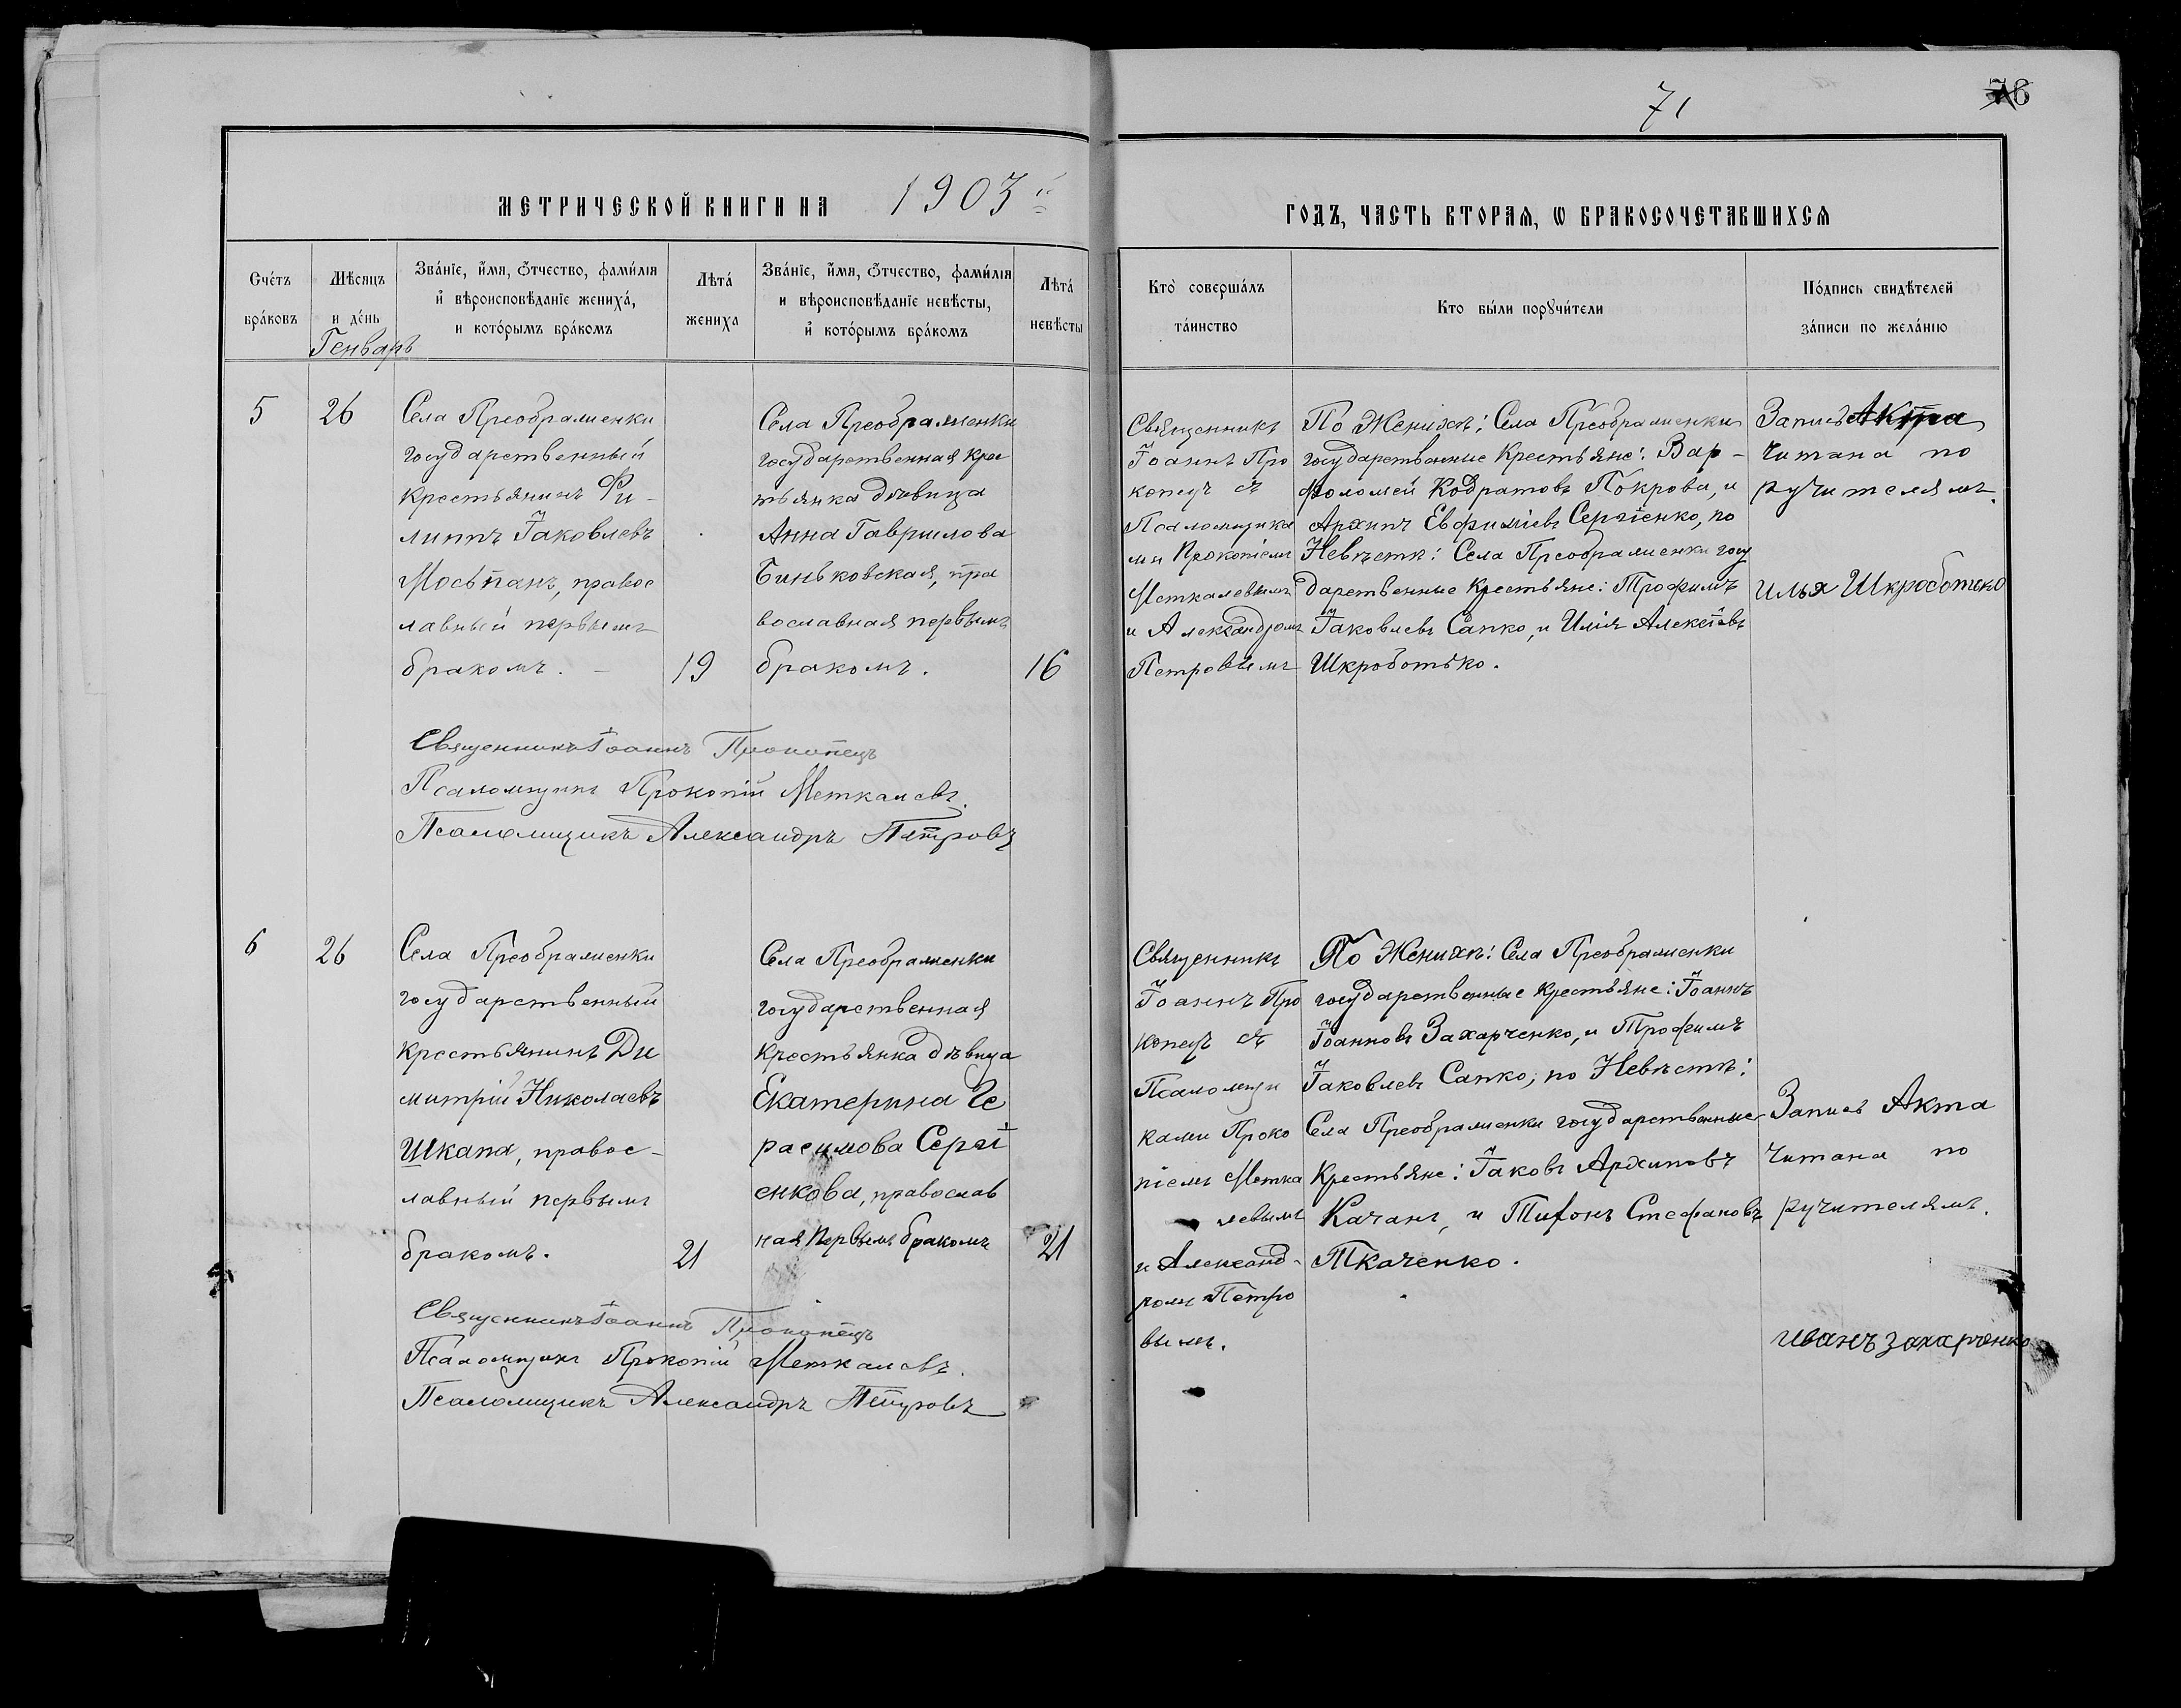 71
76
МЕТРИЧЕСКОЙ КНИГИ НА 1903й
ГОДЪ, ЧАСТЬ ВТОРАЯ, Ѡ БРАКОСОЧЕТАВШИХСЯ
Счётъ
браковъ
Мѣсяцъ
и день
Генварь
Званіе, имя, отчество, фамилія
и вѣроисповѣданіе жениха,
и которымъ бракомъ
Лѣта
жениха
Званіе, имя, отчество, фамилія
и вѣроисповѣданіе невѣсты,
и которымъ бракомъ
Лѣта
невѣсты
Кто совершалъ
таинство
Кто были поручители
Подпись свидѣтелей
записи по желанію
5
26
Села Преображенки
государственный
крестьянинъ Фи-
липпъ Іаковлевъ
Мосьпанъ, правос
лавный первымъ
бракомъ. –
19
Села Преображенки
государственная крес
тьянка дѣвица
Анна Гаврилова
Биньковская, пра
вославная первымъ
бракомъ.
16
Священникъ
Іоаннъ Про
копецъ съ
Псаломщика
ми Прокопіемъ
Меткалевымъ
и Александромъ
Петровымъ
По Женихѣ: Села Преображенки
государственные Крестьяне: Вар-
фоломей Кодратовъ Покрова, и
Архипъ Евфиміевъ Сергіенко, по
Невѣстѣ: Села Преображенки госу
дарственные Крестьяне: Трофимъ
Іаковлевъ Сапко, и Илія Алексіевъ
Шкроботько.
Запись Акта
Читана по
ручителямъ.
илья Шкроботько
Священникъ Іоаннъ Прокопецъ
Псаломщикъ Прокопій Меткалевъ.
Псаломщикъ Александръ Петровъ
6
26
Села Преображенки
государственный
крестьянинъ Ди
митрій Николаевъ
Шкапа, правос-
лавный первымъ
бракомъ.
21
Села Преображенки
государственная
крестьянка дѣвица
Екатерина Ге
расимова Сергі
енкова, православ
ная первымъ бракомъ
21
Священникъ
Іоаннъ Про
копецъ съ
Псаломщи
ками Проко
піемъ Метка
левымъ
и Александ-
ромъ Петро
вымъ.
По Женихѣ: Села Преображенки
государственные крестьяне: Іоаннъ
Іоанновъ Захарченко, и Трофимъ
Іаковлевъ Сапко, по Невѣстѣ:
Села Преображенки государственные
Крестьяне: Іаковъ Архиповъ
Качанъ, и Тифонъ Стефановъ
Ткаченко.
Запись Акта
Читана по
ручителямъ.
иванъ захарченко
Священникъ Іоаннъ Прокопецъ
Псаломщикъ Прокопій Меткалевъ.
Псаломщикъ Александръ Петровъ